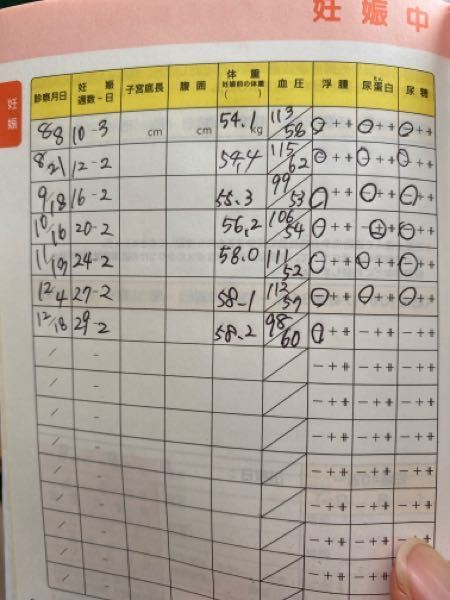 妊娠中
妊娠
診察月日 妊娠週数-日 子宮底長 腹囲 体重 妊娠前の体重( ) 血圧 浮腫 尿蛋白 尿糖
8/8 10-3 cm cm 54.1kg 113/58 - + ++ - + ++ - + ++
8/21 12-2 54.4 115/62 - + ++ - + ++ - + ++
9/18 16-2 55.3 99/53 - + ++ - + ++ - + ++
10/16 20-2 56.2 106/54 - + ++ - + ++ - + ++
24-2 58.0 111/52 - + ++ - + ++ - + ++
12/4 27-2 58.1 112/57 - + ++ - + ++ - + ++
12/18 29-2 58.2 98/60 - + ++ - + ++ - + ++
/ - / - + ++ - + ++ - + ++
/ - / - + ++ - + ++ - + ++
/ - / - + ++ - + ++ - + ++
/ - / - + ++ - + ++ - + ++
/ - / - + ++ - + ++ - + ++
/ - / - + ++ - + ++ - + ++
/ - / - + ++ - + ++
/ - / - + ++ - + ++